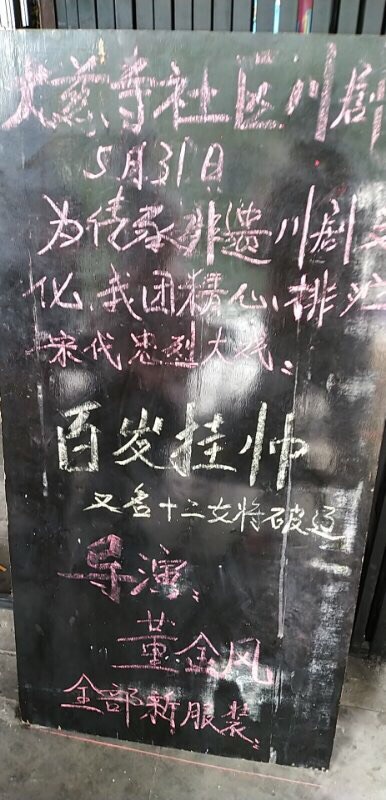 大慈寺社区川剧
5月31日
为传承非遗川剧文
化、我团精心排演
宋代忠烈大戏:
百岁挂帅
又名十二女将破辽
导演:
董金凤
全部新服装: